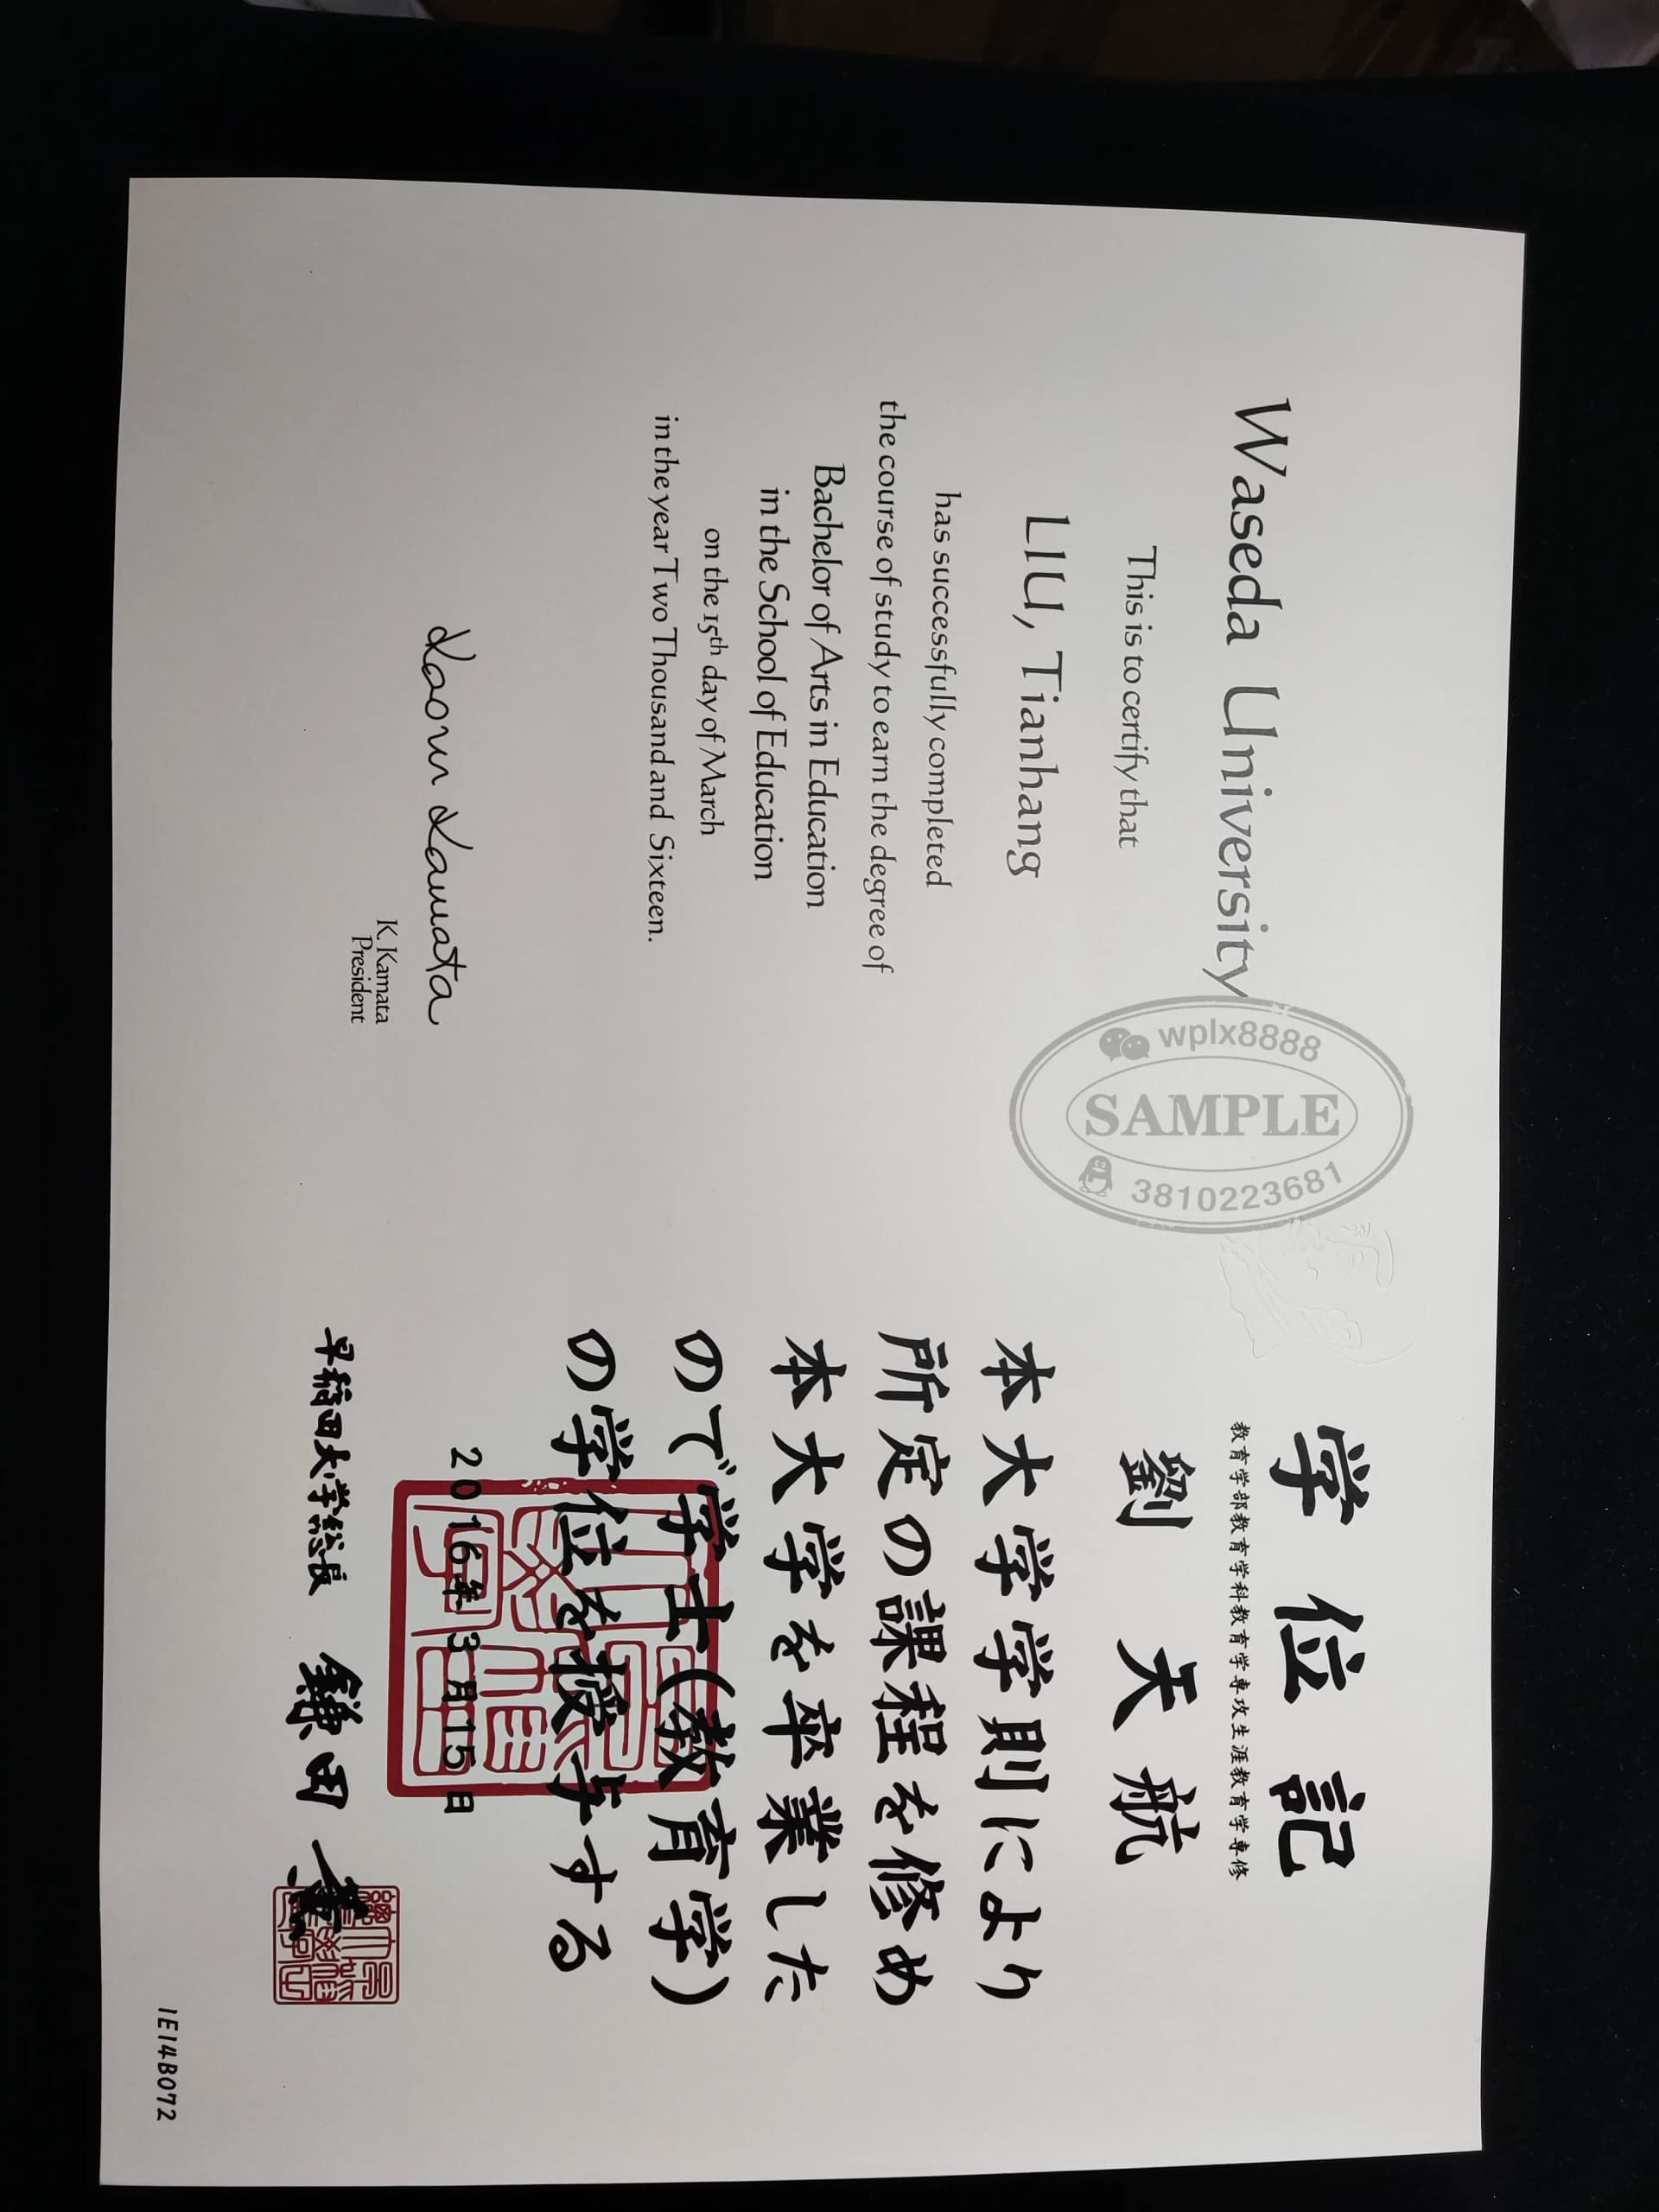 Waseda University
This is to certify that
LIU, Tianhang
has successfully completed
the course of study to earn the degree of
Bachelor of Arts in Education
in the School of Education
on the 15th day of March
in the year Two Thousand and Sixteen.
Kaoru Kamata
K. Kamata
President
wplx8888
SAMPLE
3810223681
学位記
教育学部教育学科教育学専攻生涯教育学専修
劉天航
本大学学則により
所定の課程を修め
本大学を卒業した
ので学士(教育学)
の学位を授与する
2016年3月15日
早稲田大学総長 鎌田薫
1E14B072